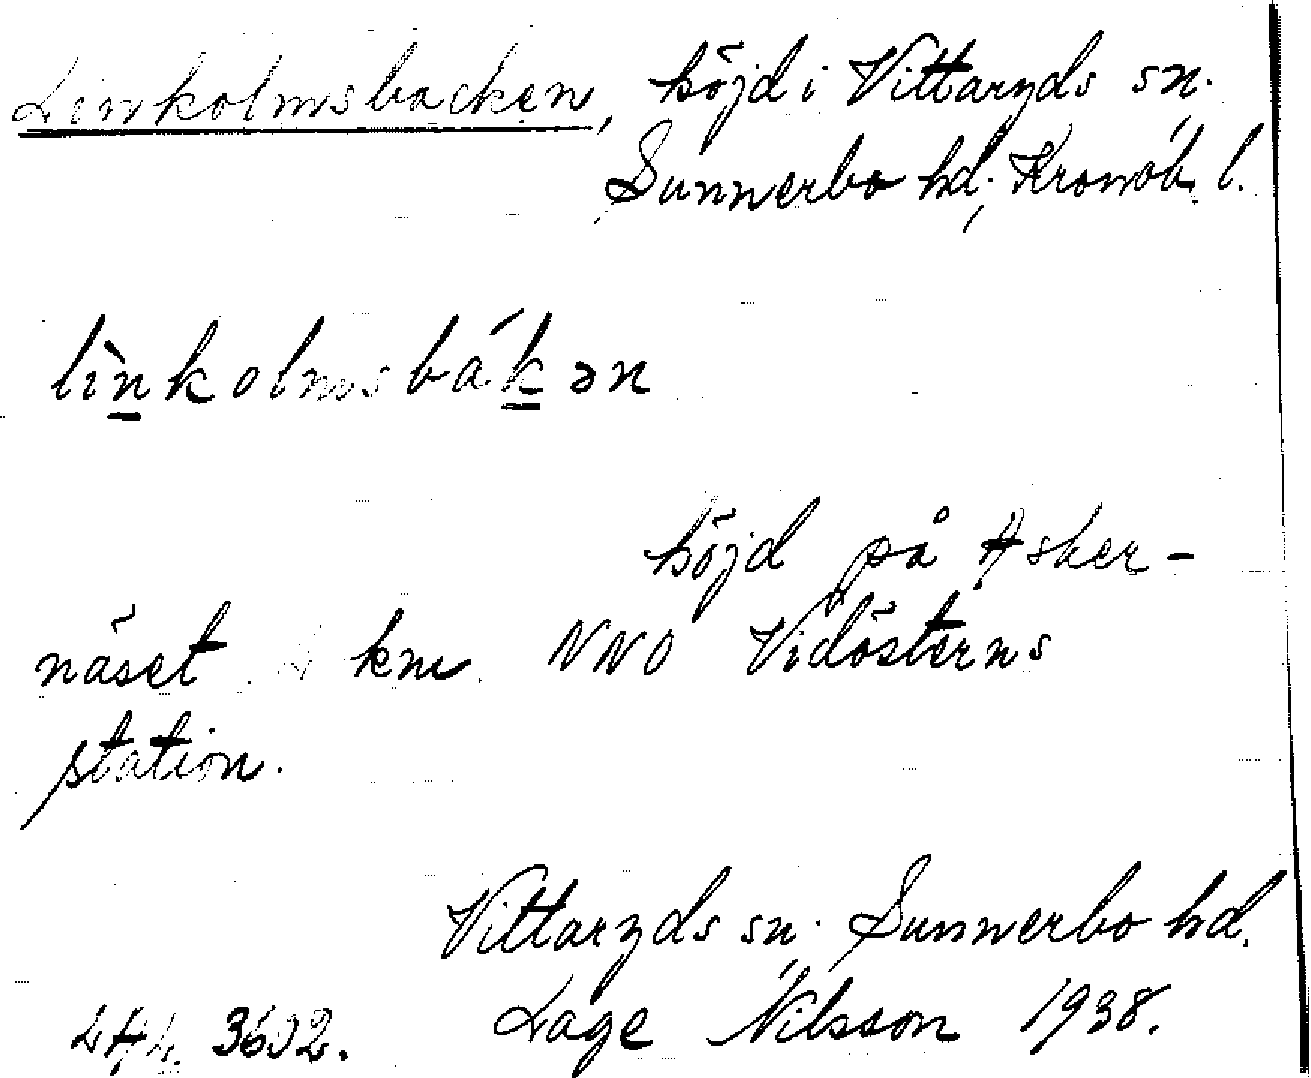 Linkolmsbacken, höjd i Vittaryds sn.,
Sunnerbo hd., Kronob. l.
lìnkolmsbákən
höjd på Asker-
näset km NNO Vidösterns
station.
Vittaryds sn., Sunnerbo hd.
3602. Lage Nilsson 1938.